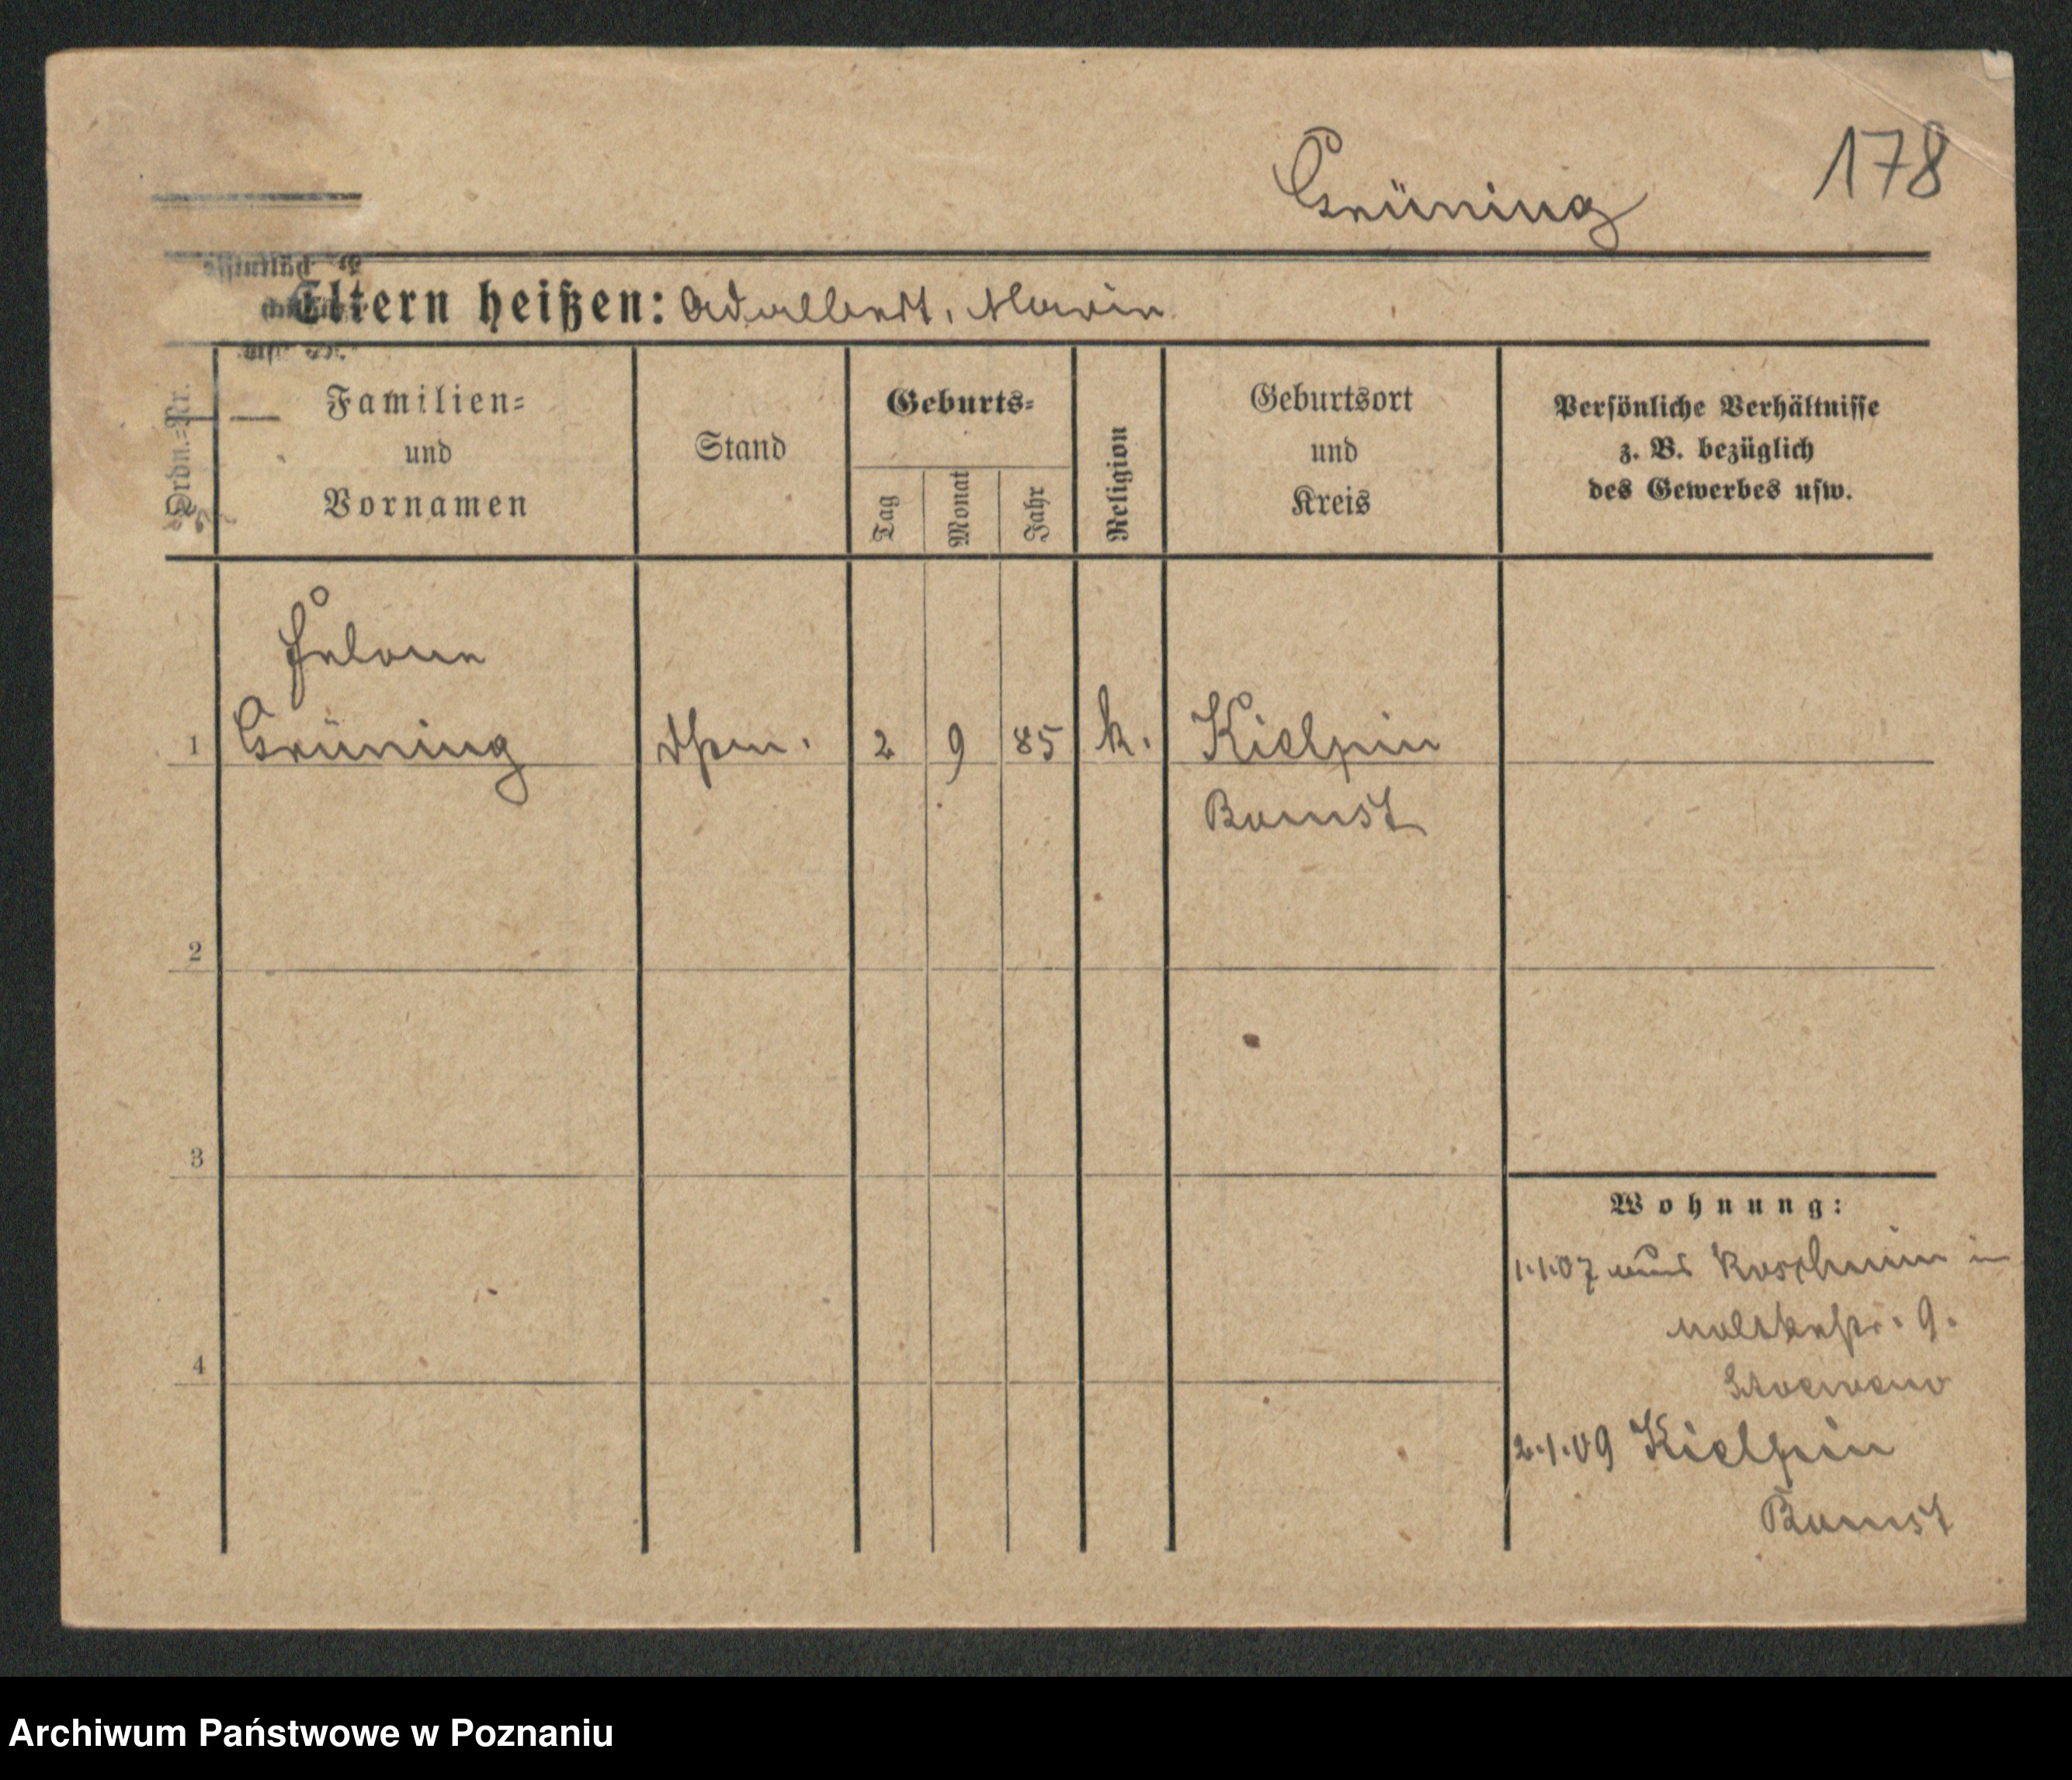 Grüning 178
Eltern heißen: Adalbert, Marie
Ordn.=Nr.
Familien=
und
Vornamen
Stand
Geburts=
Tag
Monat
Jahr
Religion
Geburtsort
und
Kreis
Persönliche Verhältnisse
z. B. bezüglich
des Gewerbes usw.
Helene
1 Grüning 2 9 85 k. Kielpin
Bomst
2
3
4
Wohnung:
1.1.07 aus Koschmin in
Moltkestr. 9.
2.1.09 Kielpin
Bomst
Archiwum Państwowe w Poznaniu